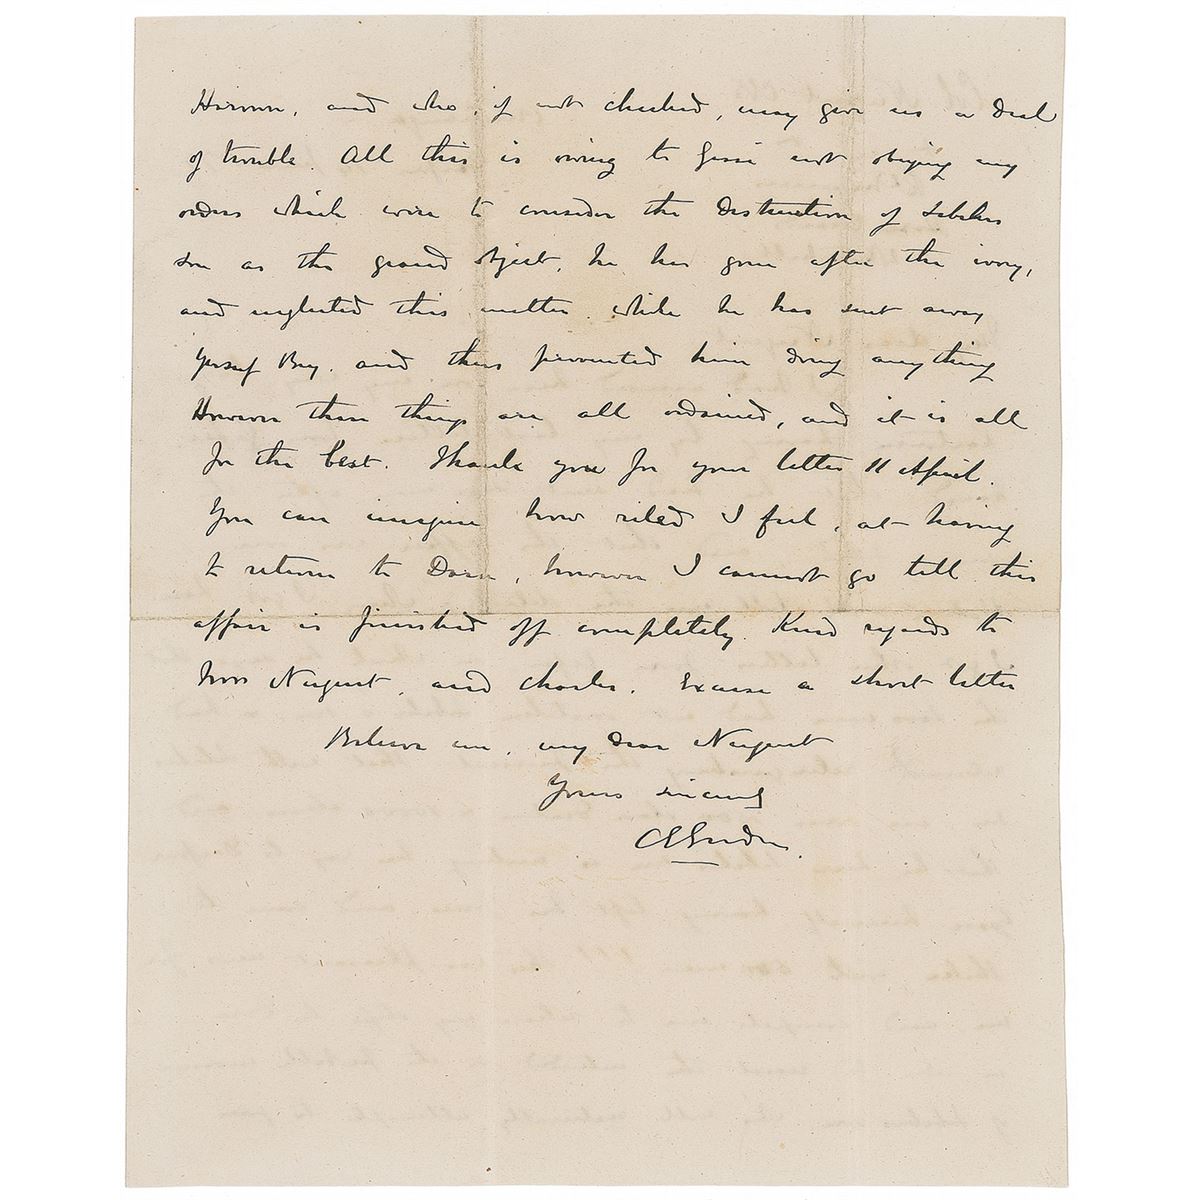 Haroun, and who, if not checked, may give us a deal
of trouble. All this is owing to Gessi not obeying my
orders which were to consider the destruction of Sebehrs
son as the grand object, he has gone after the ivory,
and neglected this matter while he has sent away
Yusuf Bey, and thus prevented him doing anything
However these things are all ordained, and it is all
for the best. Thank you for your letter 11 April.
You can imagine how riled I feel, at having
to return to Dara, however I cannot go till this
affair is finished off completely. Kind regards to
Mrs Nugent, and Charles. Excuse a short letter
Believe me, my dear Nugent
Yours sincerely
CEGordon.